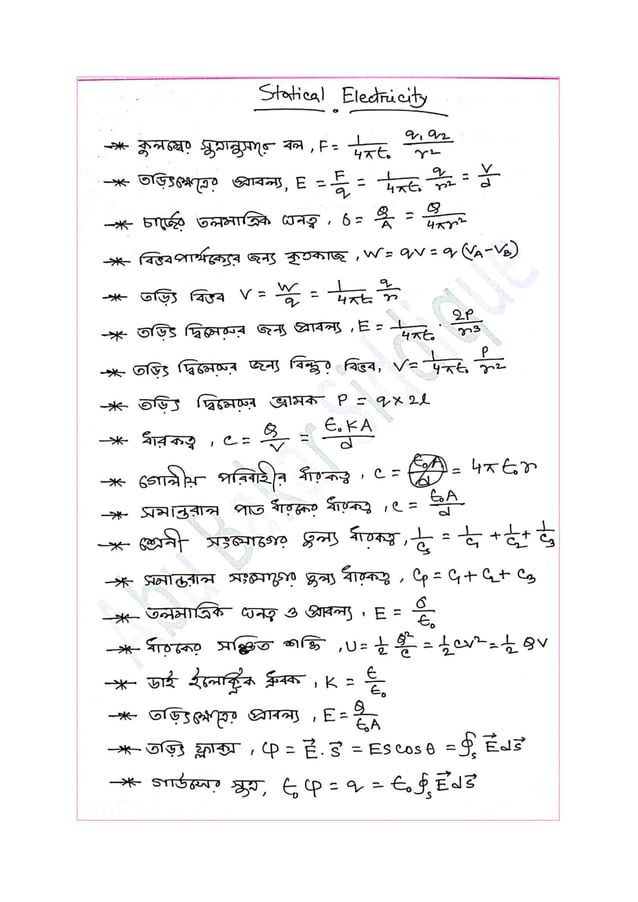 Statical Electricity
-* কুলম্বের সূত্রানুসারে বল, F = 1/4πε₀ q₁q₂/r²
-* তড়িৎক্ষেত্রের প্রাবল্য, E = F/q = 1/4πε₀ q/r² = V/d
-* চার্জের তলমাত্রিক ঘনত্ব, σ = Q/A = Q/4πr²
-* বিভবপার্থক্যের জন্য কৃতকাজ, W = qV = q (V_A - V_B)
-* তড়িৎ বিভব V = W/q = 1/4πε₀ q/r
-* তড়িৎ দ্বিমেরুর জন্য প্রাবল্য, E = 1/4πε₀ · 2P/r³
-* তড়িৎ দ্বিমেরুর জন্য বিন্দুর বিভব, V = 1/4πε₀ P/r²
-* তড়িৎ দ্বিমেরুর ভ্রামক P = q × 2l
-* ধারকত্ব, C = Q/V = ε₀KA/d
-* গোলীয় পরিবাহীর ধারকত্ব, C = = 4πε₀r
-* সমান্তরাল পাত ধারকের ধারকত্ব, C = ε₀A/d
-* শ্রেনী সংযোগের তুল্য ধারকত্ব, 1/Cs = 1/C₁ + 1/C₂ + 1/C₃
-* সমান্তরাল সংযোগের তুল্য ধারকত্ব, Cp = C₁ + C₂ + C₃
-* তলমাত্রিক ঘনত্ব ও প্রাবল্য, E = σ/ε₀
-* ধারকের সঞ্চিত শক্তি, U = 1/2 Q²/C = 1/2 CV² = 1/2 QV
-* ডাই ইলেক্ট্রিক ধ্রুবক, K = ε/ε₀
-* তড়িৎক্ষেত্রের প্রাবল্য, E = Q/ε₀A
-* তড়িৎ ফ্লাক্স, φ = E⃗.S⃗ = ES cos θ = ∮s E⃗ dS⃗
-* গাউসের সূত্র, ε₀φ = q = ε₀∮s E⃗ dS⃗
Abu Bakar Siddique